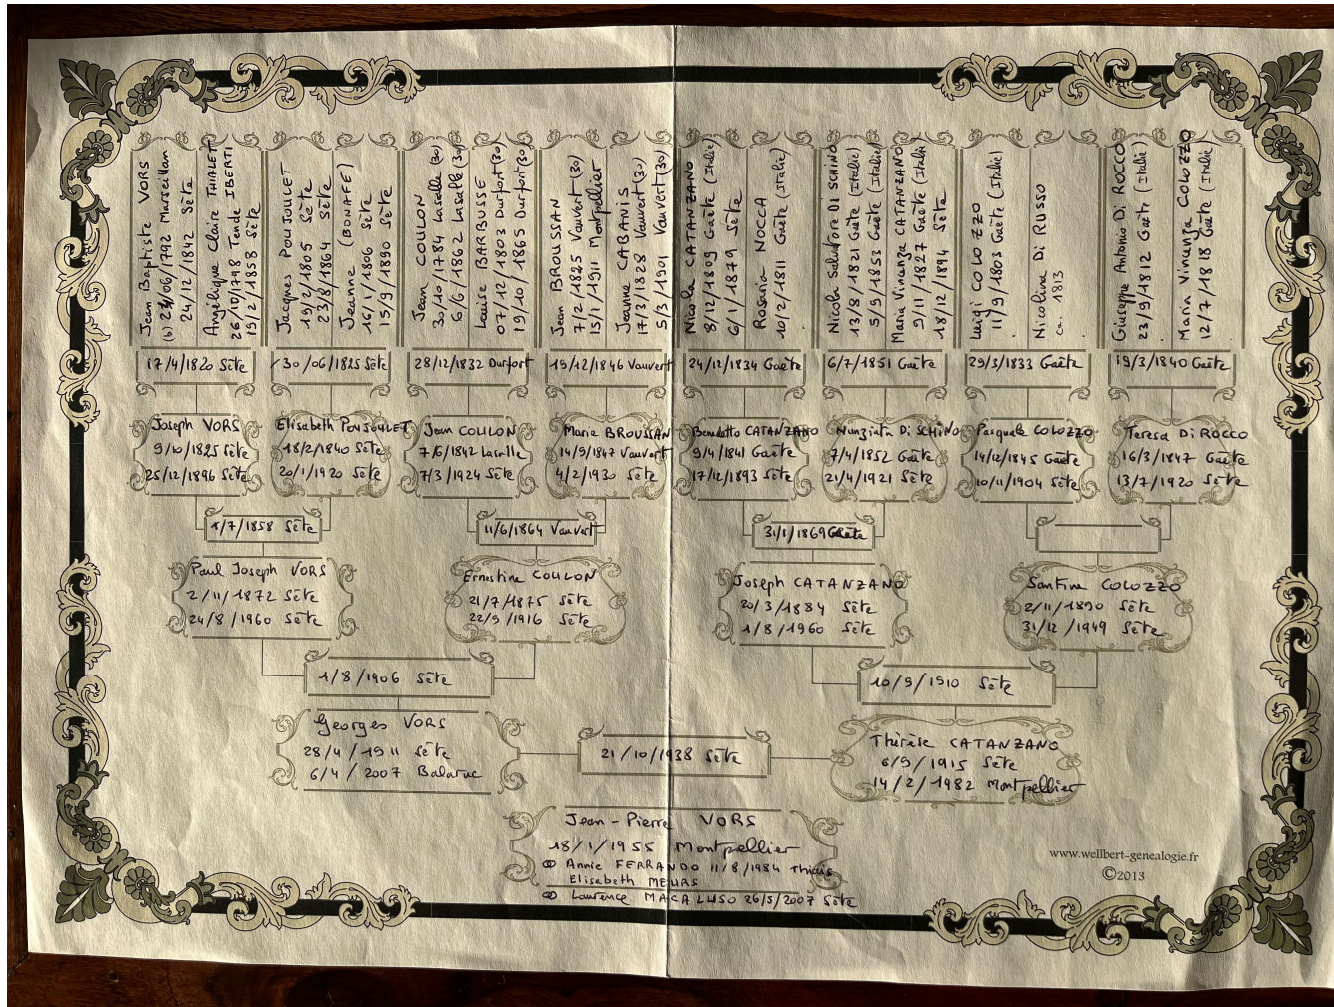 Jean Baptiste VORS
(b) 24/06/1792 Marseillan
24/12/1842 Sète
Angélique Claire THIALET
26/10/1798 Tende IBERTI
19/2/1858 Sète
Jacques POUJOULET
19/2/1805 Sète
23/8/1864 Sète
Jeanne (BONAFE)
16/1/1806 Sète
15/9/1890 Sète
Jean COULON
30/10/1784 Lasalle (30)
6/6/1862 Lasalle (30)
Louise BARBUSSE
07/12/1803 Durfort (30)
19/10/1865 Durfort (30)
Jean BROUSSAN
7/2/1825 Vauvert (30)
15/1/1911 Montpellier
Jeanne CABANIS
17/3/1828 Vauvert (30)
5/3/1901 Vauvert (30)
Nicola CATANZANO
8/12/1809 Gaète (Italie)
6/1/1879 Sète
Rosaria NOCCA
10/2/1811 Gaète (Italie)
Nicola Salvatore DI SCHINO
13/8/1821 Gaète (Italie)
5/9/1853 Gaète (Italie)
Maria Vincenza CATANZANO
9/11/1827 Gaète (Italie)
18/12/1894 Sète
Luigi COLOZZO
11/9/1803 Gaète (Italie)
Nicolina Di RUSSO
ca. 1813
Giuseppe Antonio Di ROCCO
23/9/1812 Gaète (Italie)
Maria Vincenza COLOZZO
12/7/1818 Gaète (Italie)
17/4/1820 Sète
30/06/1825 Sète
28/12/1832 Durfort
19/12/1846 Vauvert
24/12/1834 Gaète
6/7/1851 Gaète
29/3/1833 Gaète
19/3/1840 Gaète
Joseph VORS
9/10/1825 Sète
25/12/1896 Sète
Elisabeth POUJOULET
18/2/1840 Sète
20/1/1920 Sète
Jean COULON
7/6/1842 Lasalle
7/3/1924 Sète
Marie BROUSSAN
14/9/1847 Vauvert
4/2/1930 Sète
Benedetto CATANZANO
9/4/1841 Gaète
17/12/1893 Sète
Nunziata Di SCHINO
7/4/1852 Gaète
21/4/1921 Sète
Pasquale COLOZZO
14/12/1845 Gaète
10/11/1904 Sète
Teresa Di ROCCO
16/3/1847 Gaète
13/7/1920 Sète
/7/1858 Sète
11/6/1864 Vauvert
31/1/1869 Gaète
Paul Joseph VORS
2/11/1872 Sète
24/8/1960 Sète
Ernestine COULON
21/7/1875 Sète
22/9/1916 Sète
Joseph CATANZANO
20/3/1884 Sète
1/8/1960 Sète
Santine COLOZZO
2/11/1890 Sète
31/12/1949 Sète
1/8/1906 Sète
10/9/1910 Sète
Georges VORS
28/4/1911 Sète
6/4/2007 Balaruc
21/10/1938 Sète
Thérèse CATANZANO
6/9/1915 Sète
14/2/1982 Montpellier
Jean-Pierre VORS
18/1/1955 Montpellier
⚭ Annie FERRANDO 11/8/1984 Thiais
Elisabeth MEURS
⚭ Laurence MACALUSO 26/5/2007 Sète
www.wellbert-genealogie.fr
©2013